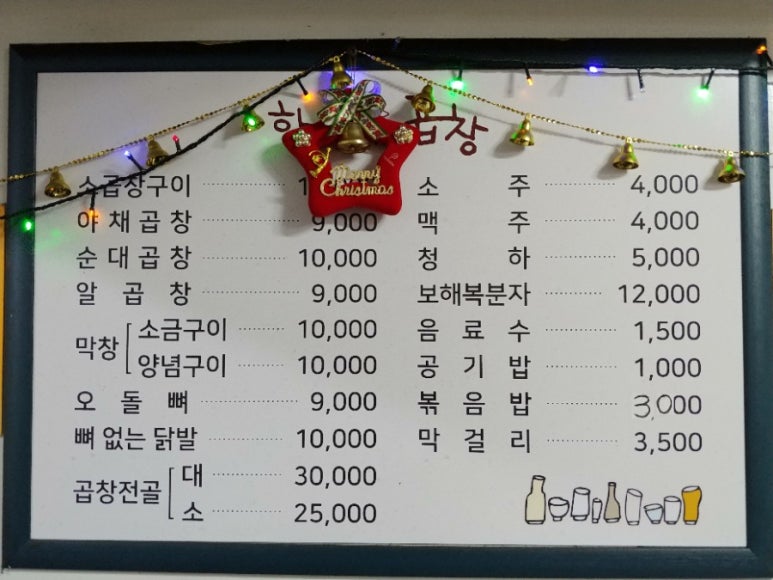 하 곱창
Merry
Christmas
소곱창구이
야채곱창 9,000
순대곱창 10,000
알곱창 9,000
막창 소금구이 10,000
양념구이 10,000
오돌뼈 9,000
뼈 없는 닭발 10,000
곱창전골 대 30,000
소 25,000
소주 4,000
맥주 4,000
청하 5,000
보해복분자 12,000
음료수 1,500
공기밥 1,000
볶음밥 3,000
막걸리 3,500